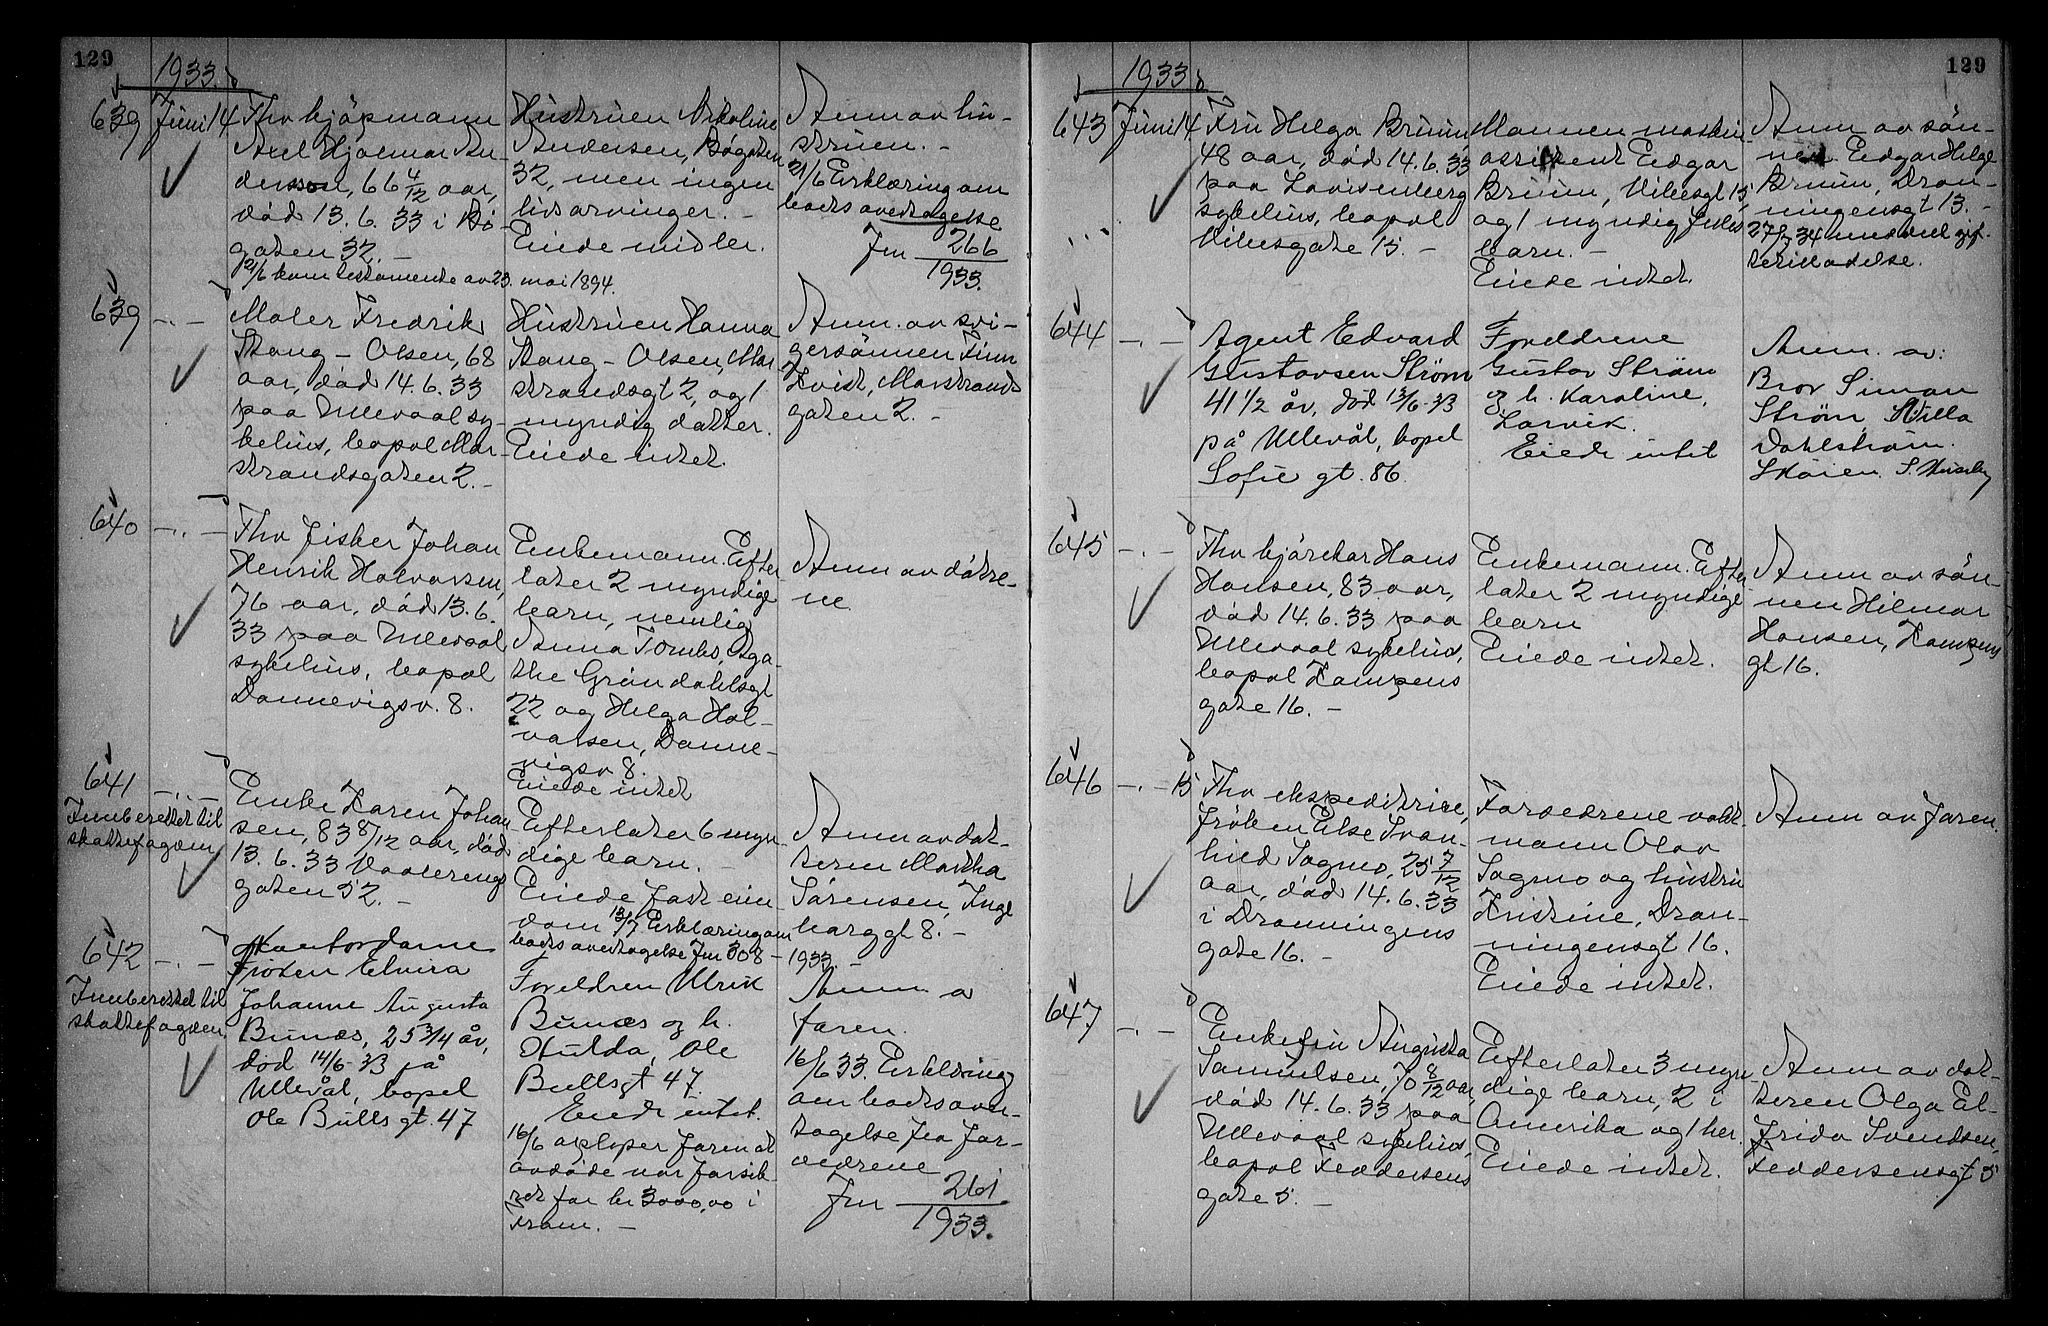 129
1933.
639 Juni 14 Fhv kjøpmann
Axel Hjalmar An-
dersson, 66 4/12 aar,
død 13.6.33 i Bø-
gaten 32. –
12/6 kom testamente av 23. mai 1894.
Hustruen Nikoline
Andersen, Bøgaten
32, men ingen
livsarvinger. –
Eiede midler.
Anm av hu-
struen. –
21/6 Erklæring om
boets overtagelse
Jnr 266
1933.
639 -.-
Maler Fredrik
Stang - Olsen, 68
aar, død 14.6.33
paa Ullevaal sy-
kehus, bopel Mar-
strandsgaten 2. –
Hustruen Hanna
Stang - Olsen, Mar
strandsgt 2, og 1
myndig datter.
Eiede intet.
Anm. av svi-
gersønnen Finn
Kvist, Marstrands
gaten 2. –
640 -.-
Fhv fisker Johan
Henrik Halvorsen,
76 aar, død 13.6.
33 paa Ullevaal
sykehus, bopel
Dannevigsv. 8.
Enkemann. Efter
later 2 myndige
barn, nemlig
Anna Tombs, Aga-
the Grøndahlsgt
22 og Helga Hal-
vorsen, Danne-
vigsv 8.
Eiede intet
Anm av døtre-
ne.
641 -.-
Innberettet til
skattefogden
Enke Karen Johan
sen, 83 8/12 aar, død
13.6.33 Vaalereng
gaten 52. –
Efterlater 6 myn-
dige barn.
Eiede fast eien
dom 13/7 Erklæring om
boets overtagelse Jnr 308 –
1933. –
Anm av dat-
teren Martha
Sørensen, Inge
borggt 8. –
642 -.-
Innberettet til
skattefogden.
Kontordame
Frøken Elvira
Johanne Augusta
Bunæs, 25 3/4 år,
død 14/6-33 på
Ullevål, bopel
Ole Bulls gt. 47
Foreldren Ulrik
Bunæs og h.
Hulda, Ole
Bullsgt 47.
Eiede intet.
16/6 oplyser faren at
avdøde var forsik-
ret for kr 3000,00 i
Fram. –
Anm a
faren.
16/6 33. Erklæring
om boets over-
tagelse fra for-
ældrene
Jnr 261
1933.
129
1933.
643 Juni 14 Fru Helga Bruun,
48 aar, død 14.6.33
paa Lovisenberg
sykehus, bopel
Vibesgate 15. –
Mannen maskin
assistent Eidgar
Bruun, Vibesgt 15,
og 1 myndig felles
barn. –
Eiede intet.
Anm av søn-
nen Eidgar Helge
Bruun, Dron-
ningensgt 13. –
34 meddelt gif-
tertilladelse.
644 -.-
Agent Edvard
Gustavsen Strøm
41 1/2 år, død 13/6-33
på Ullevål, bopel
Sofie gt. 86.
Foreldrene
Gustav Strøm
og h. Karoline,
Larvik.
Eiede intet
Anm. av:
Bror Simon
Strøm, Villa
Dahlstrøm.
Skøien.
645 -.-
Fhv kjørekar Hans
Hansen, 83 aar,
død 14.6.33 paa
Ullevaal sykehus,
bopel Kampens
gate 16. –
Enkemann. Efter
later 2 myndige
barn
Eiede intet.
Anm av søn-
nen Hilmar
Hansen, Kampens
gt 16.
646 -.- 15
Fhv ekspeditrice,
frøken Else Svan-
hild Sagmo, 25 7/12
aar, død 14.6.33
i Dronningens
gate 16. –
Forældrene vakt-
mann Olav
Sagmo og hustru
Kristine, Dron-
ningensgt 16.
Eiede intet.
Anm av faren.
647 -.-
Enkefru Augusta
Samuelsen, 70 8/12 aar,
død 14.6.33 paa
Ullevaal sykehus,
bopel Feddersens
gate 5. –
Efterlater 3 myn
dige barn, 2 i
Amerika og 1 her.
Eiede intet.
Anm av dat-
teren Olga El-
frida Svendsen,
Feddersensgt 5